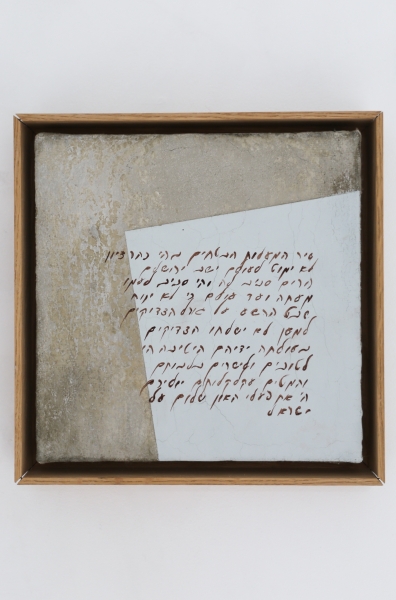 שיר המעלות הבטחים בה׳ כהר ציון
לא ימוט לעולם ישב ירושלם
הרים סביב לה וה׳ סביב לעמו
מעתה ועד עולם כי לא ינוח
שבט הרשע על גורל הצדיקים
למען לא ישלחו הצדיקים
בעולתה ידיהם היטיבה ה׳
לטובים ולישרים בלבותם
והמטים עקלקלותם יוליכם
ה׳ את פעלי האון שלום על
ישראל